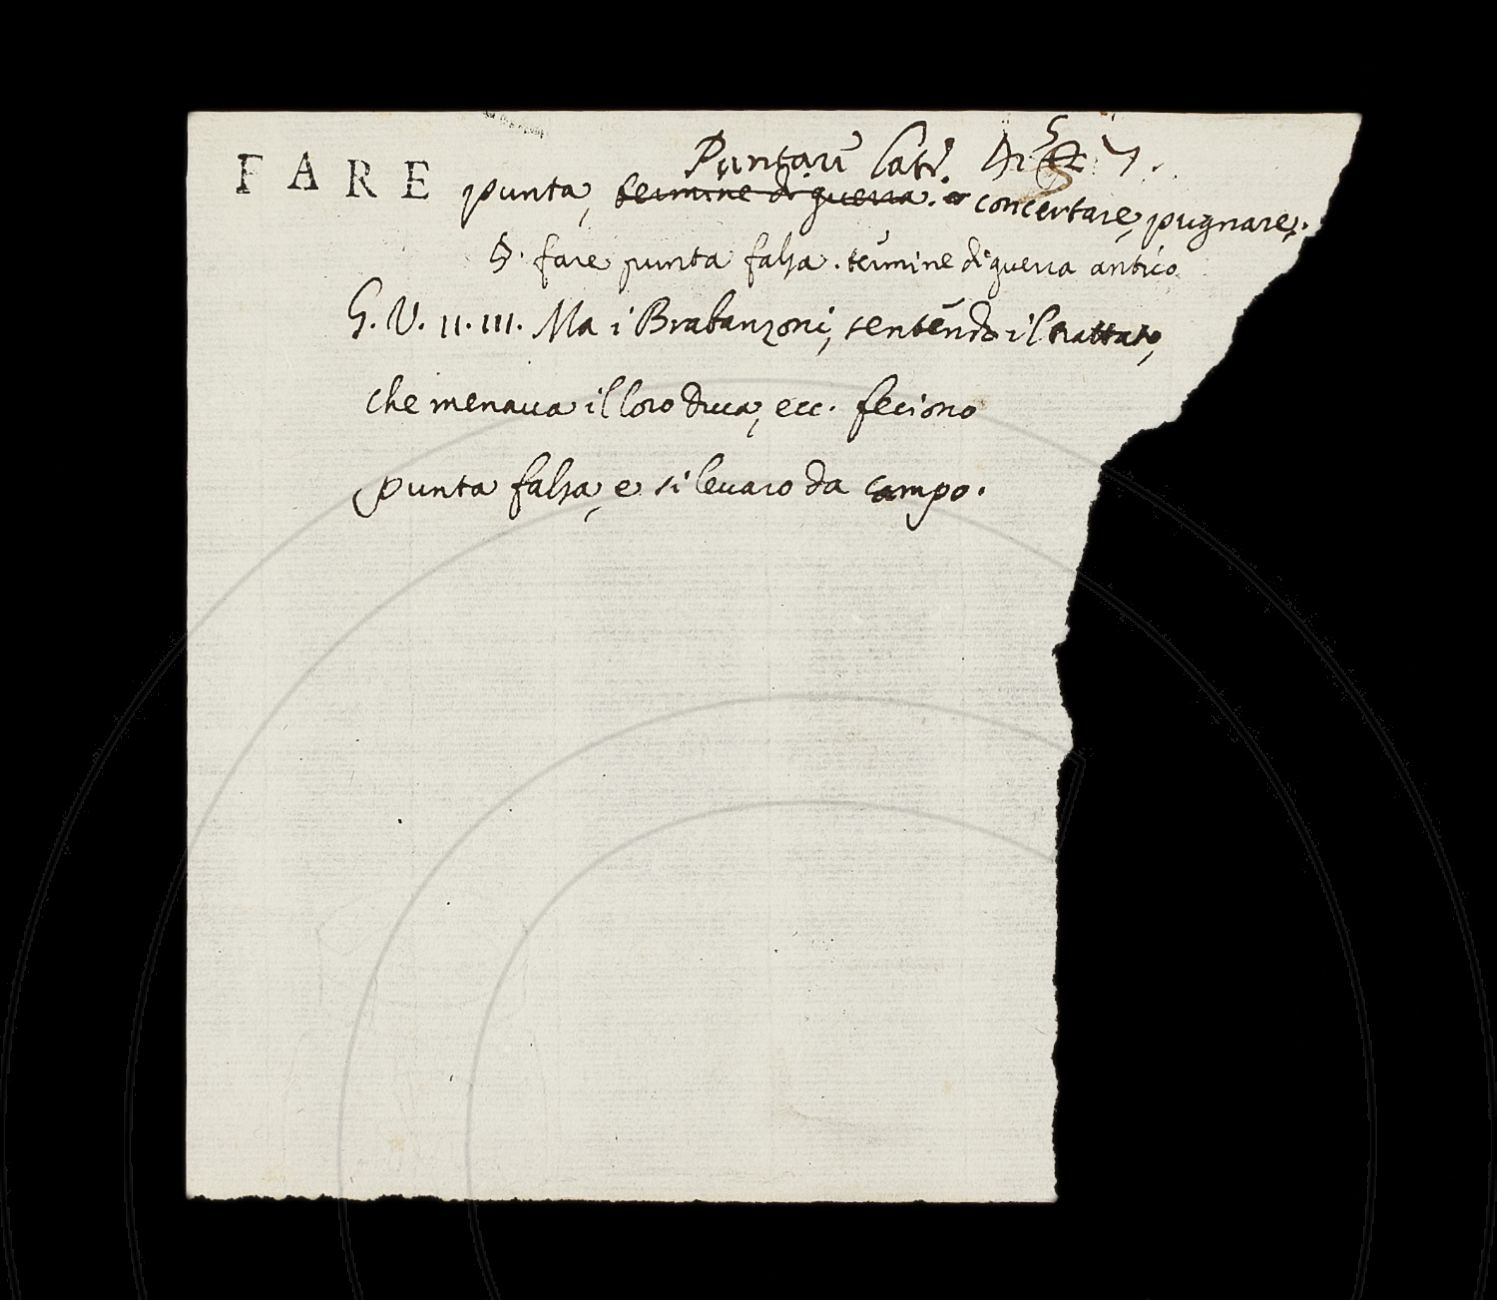 Puntarū Lat.
FARE punta, termine di guerra. concertare, pugnare.
§. fare punta falsa. termine di guerra antico
G. V. 11. 111. Ma i Brabanzoni, sentendo il trattato,
che menava il loro duca, ecc. feciono
punta falsa, e si levaro da campo.